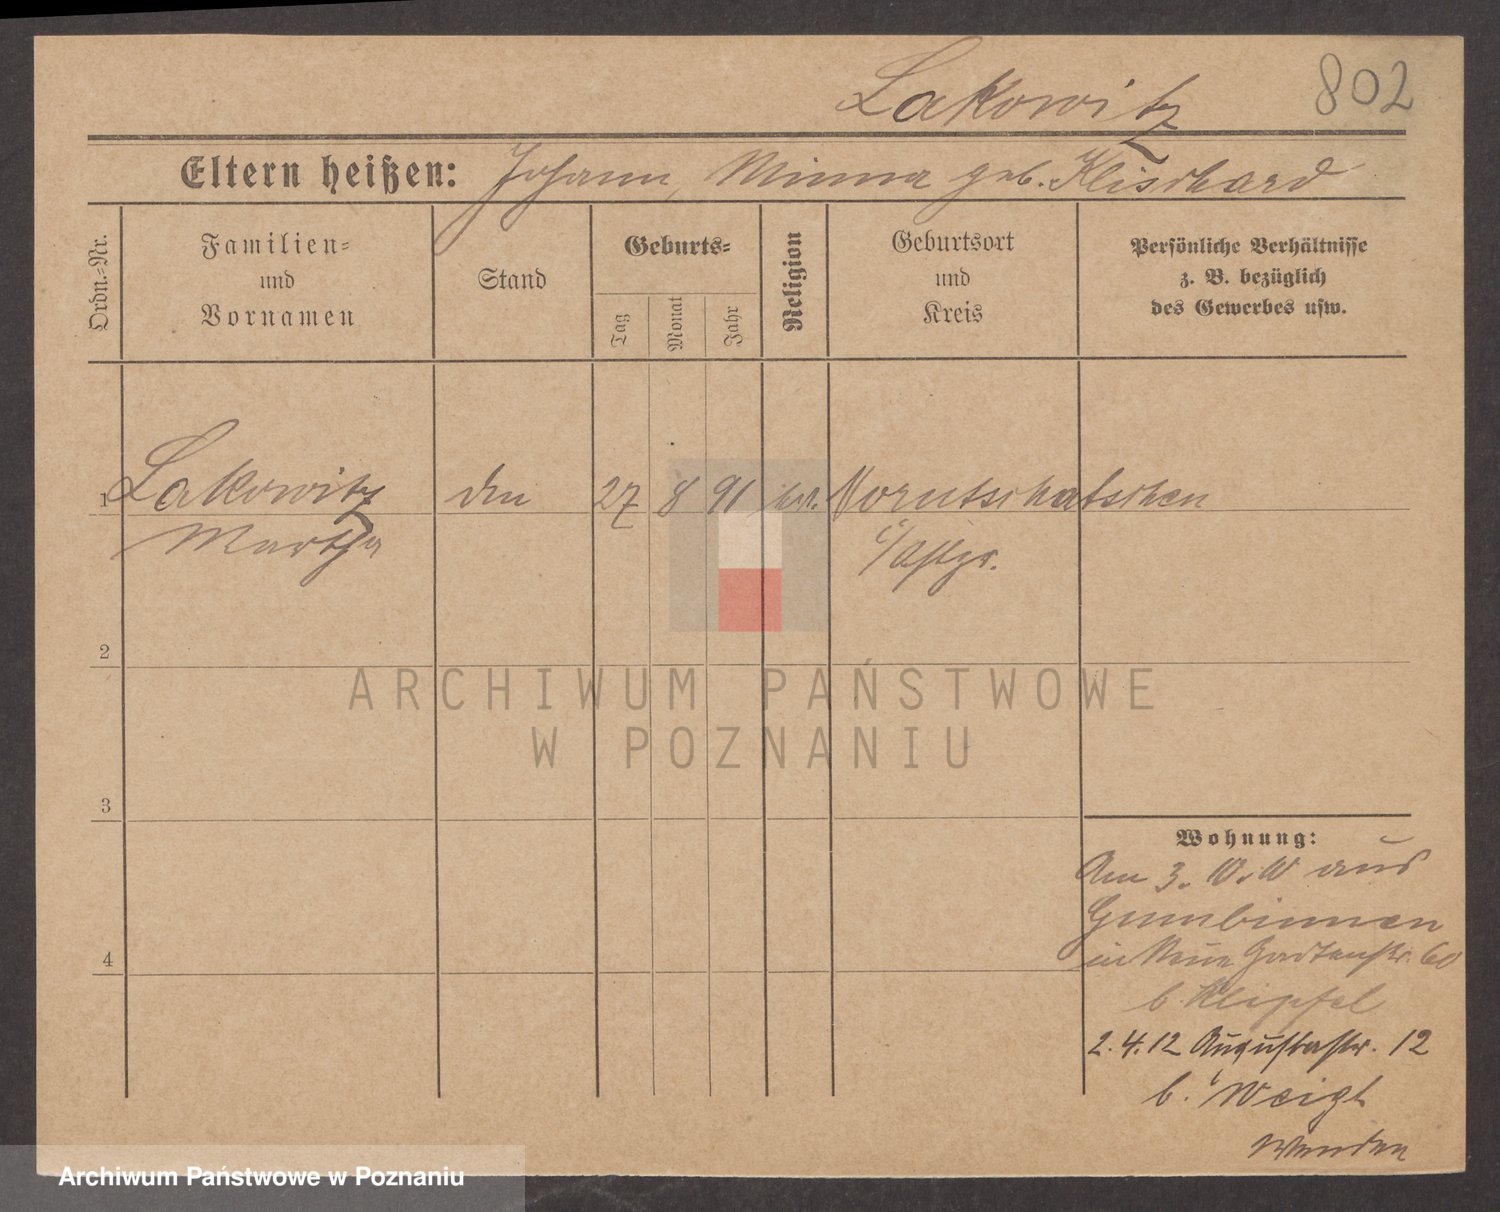 Lakowitz 802
Eltern heißen: Johann, Minna geb. Klischard
Ordn.-Nr.
Familien-
und
Vornamen
Stand
Geburts-
Tag
Monat
Jahr
Religion
Geburtsort
und
Kreis
Persönliche Verhältnisse
z. B. bezüglich
des Gewerbes usw.
1 Lakowitz 27 8 91
Martha
2
3
4
Wohnung:
Am 3. aus
Gumbinnen
in Neue Gartenstr. 60
b. Klipfel
2.4.12 Augustastr. 12
b. Weigt
Wenden
ARCHIWUM PAŃSTWOWE
W POZNANIU
Archiwum Państwowe w Poznaniu